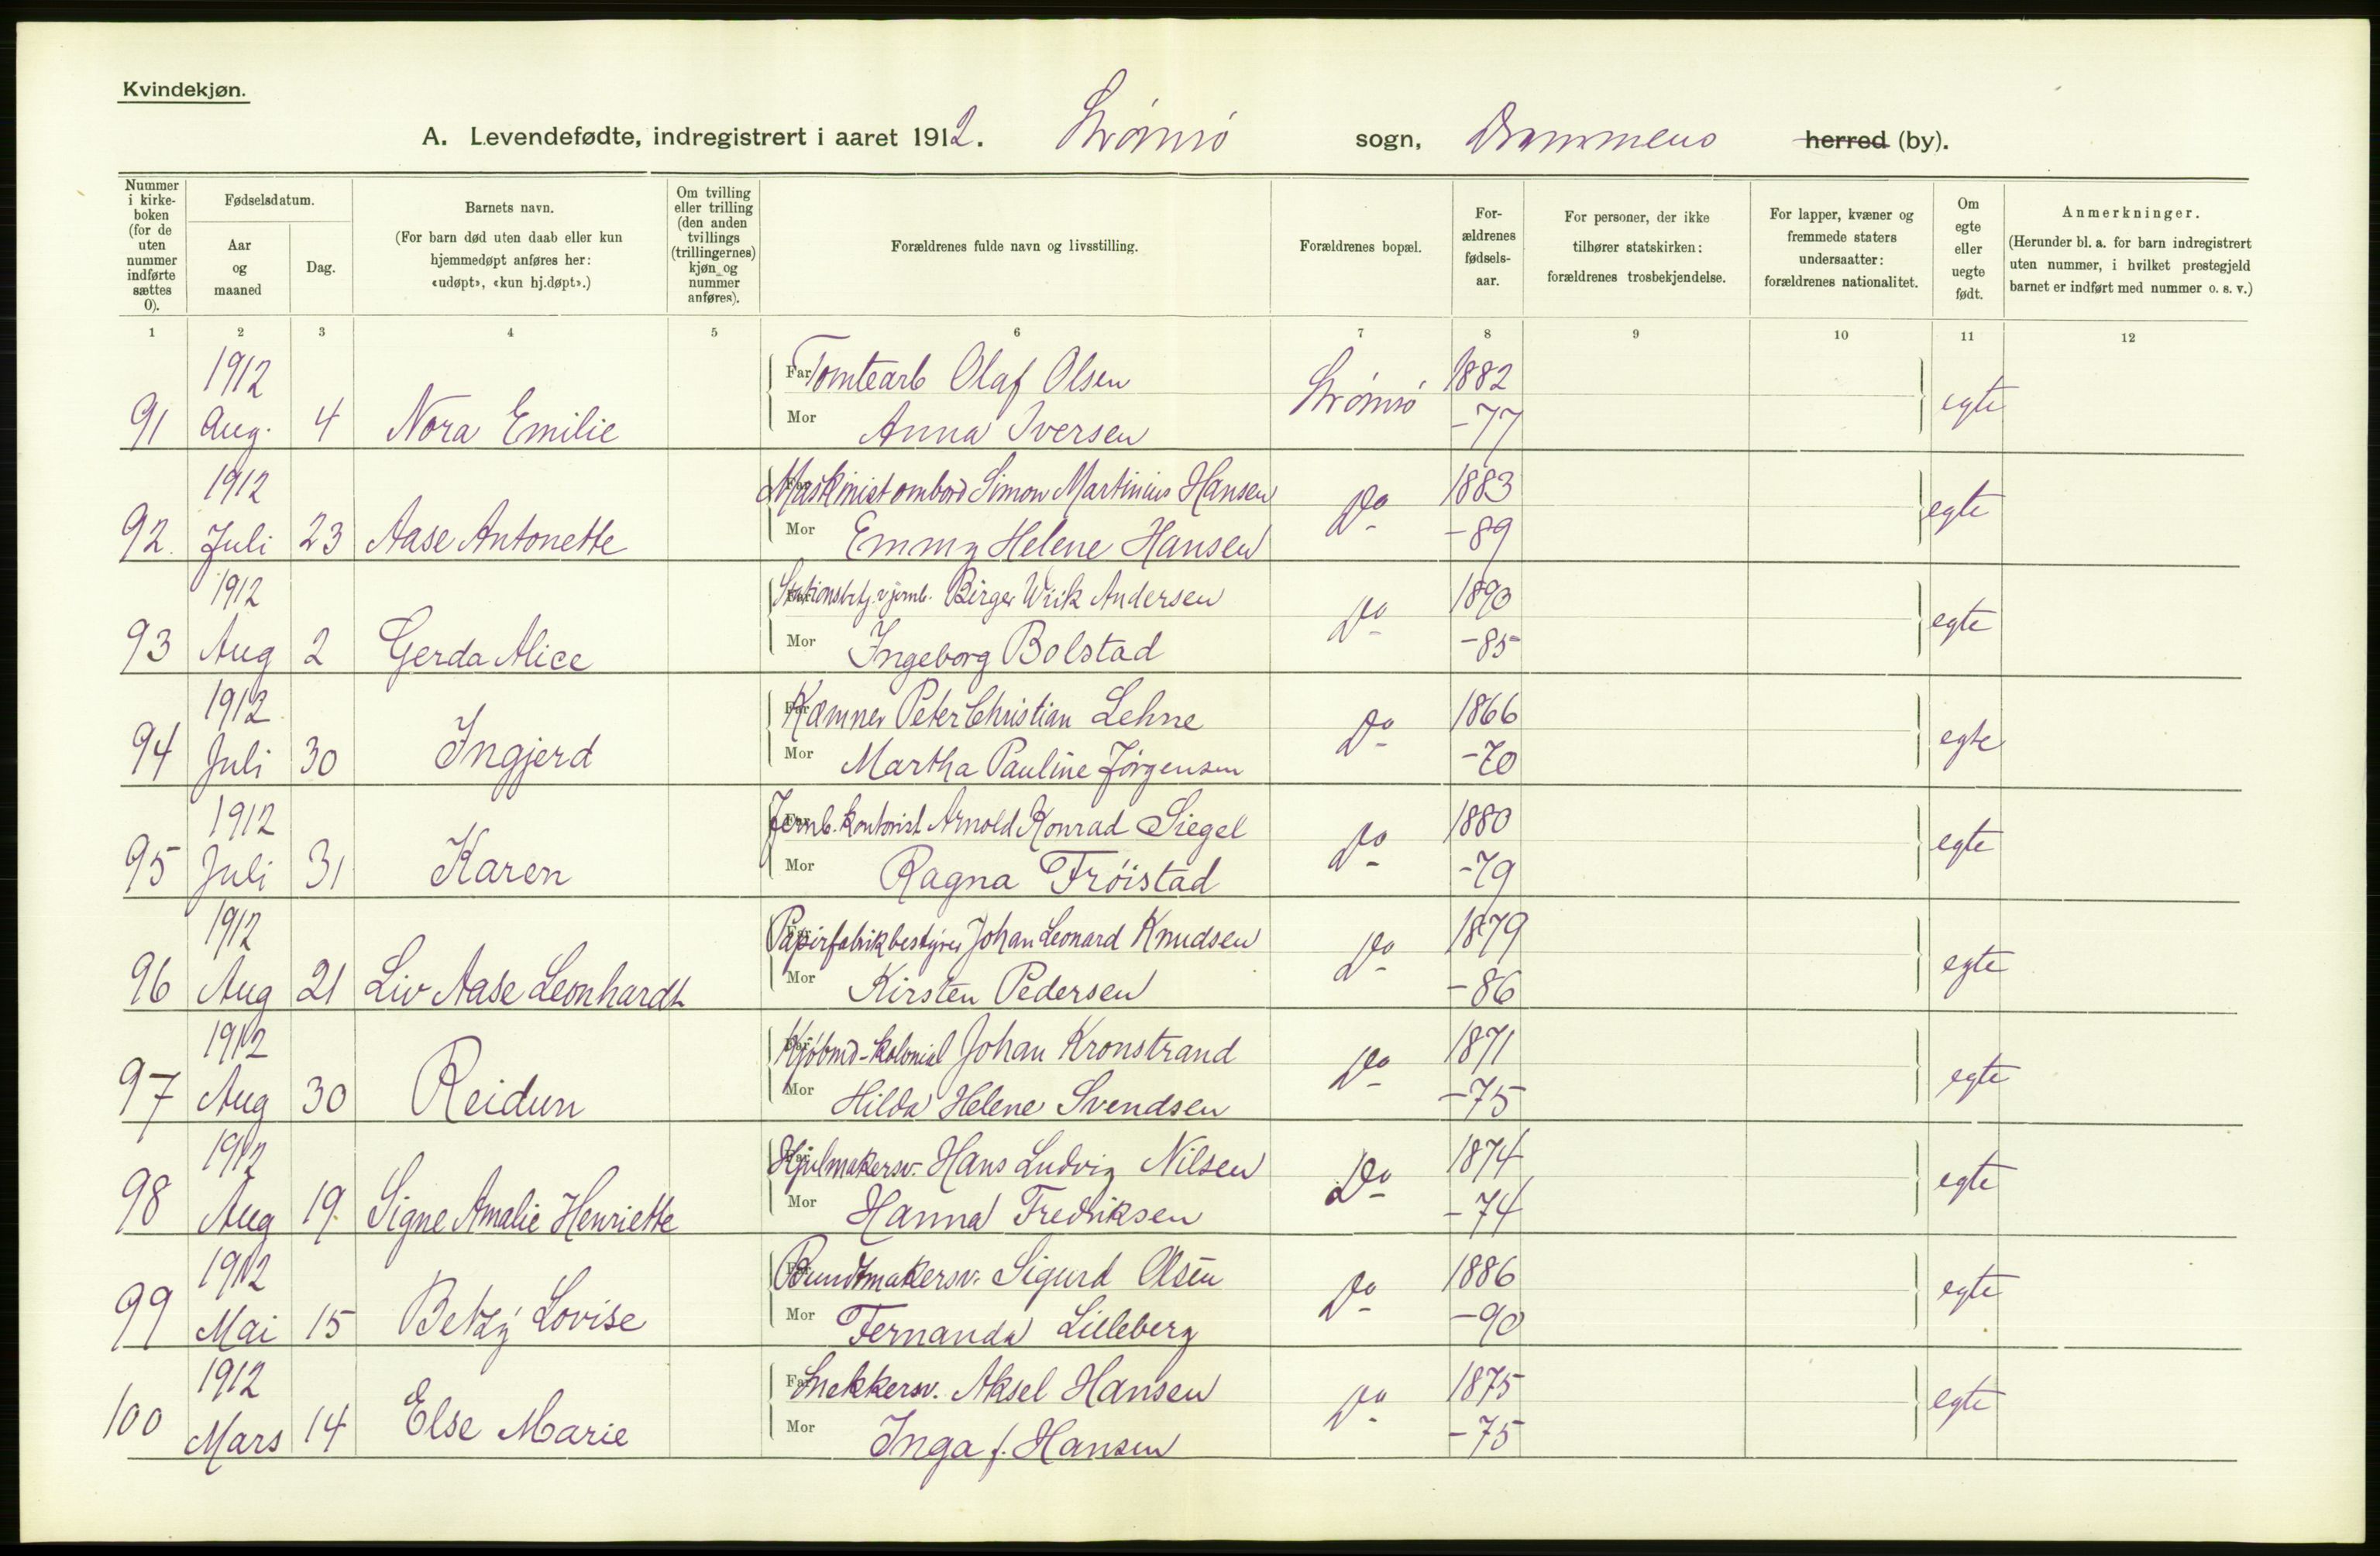 Kvindekjøn.
A. Levendefødte, indregistrert i aaret 1912. Strömsö sogn, Drammens herred (by).
Nummer i kirke-boken (for de uten nummer indførte sættes 0).
Fødselsdatum.
Aar og maaned
Dag.
Barnets navn.
(For barn død uten daab eller kun hjemmedøpt anføres her: «udøpt», «kun hj.døpt».)
Om tvilling eller trilling (den anden tvillings (trillingernes) kjøn og nummer anføres).
Forældrenes fulde navn og livsstilling.
Forældrenes bopæl.
For-ældrenes fødsels-aar.
For personer, der ikke tilhører statskirken: forældrenes trosbekjendelse.
For lapper, kvæner og fremmede staters undersaatter: forældrenes nationalitet.
Om egte eller uegte født.
Anmerkninger.
(Herunder bl. a. for barn indregistrert uten nummer, i hvilket prestegjeld barnet er indført med nummer o. s. v.)
1 2 3 4 5 6 7 8 9 10 11 12
1912 Far Tomtearb Olaf Olsen Strömsö 1882 egte
91 Aug. 4 Nora Emilie Mor Anna Iversen -77
1912 Far Maskinist ombord Simon Martinius Hansen Do 1883 egte
92. Juli 23 Aase Antonette Mor Emmy Helene Hansen -89
1912 Far Stationsbetj. v jernb. Birger Wiik Andersen Do 1890 egte
93 Aug 2 Gerda Alice Mor Ingeborg Bolstad -85
1912 Far Kæmner Peter Christian Lehne Do 1866 egte
94 Juli 30 Ingjerd Mor Martha Pauline Jörgensen -70
1912 Far Jernb. kontorist Arnold Konrad Siegel Do 1880 egte
95 Juli 31 Karen Mor Ragna Fröistad -79
1912 Far Papirfabrikbestyrer Johan Leonard Knudsen Do 1879 egte
96 Aug 21 Liv Aase Leonhardt Mor Kirsten Pedersen -86
1912 Far Kjöbmd-kolonial Johan Kronstrand Do 1871 egte
97 Aug 30 Reidun Mor Hilda Helene Svendsen -75
1912 Far Hjulmakersv. Hans Ludvig Nilsen Do 1874 egte
98 Aug 19. Signe Amalie Henriette Mor Hanna Fredriksen -74
1912 Far Bundtmakersv. Sigurd Olsen Do 1886 egte
99 Mai 15 Betzy Lovise Mor Fernanda Lilleberg -90
1912 Far Snekkersv. Aksel Hansen Do 1875 egte
100 Mars 14 Else Marie Mor Inga f. Hansen -75